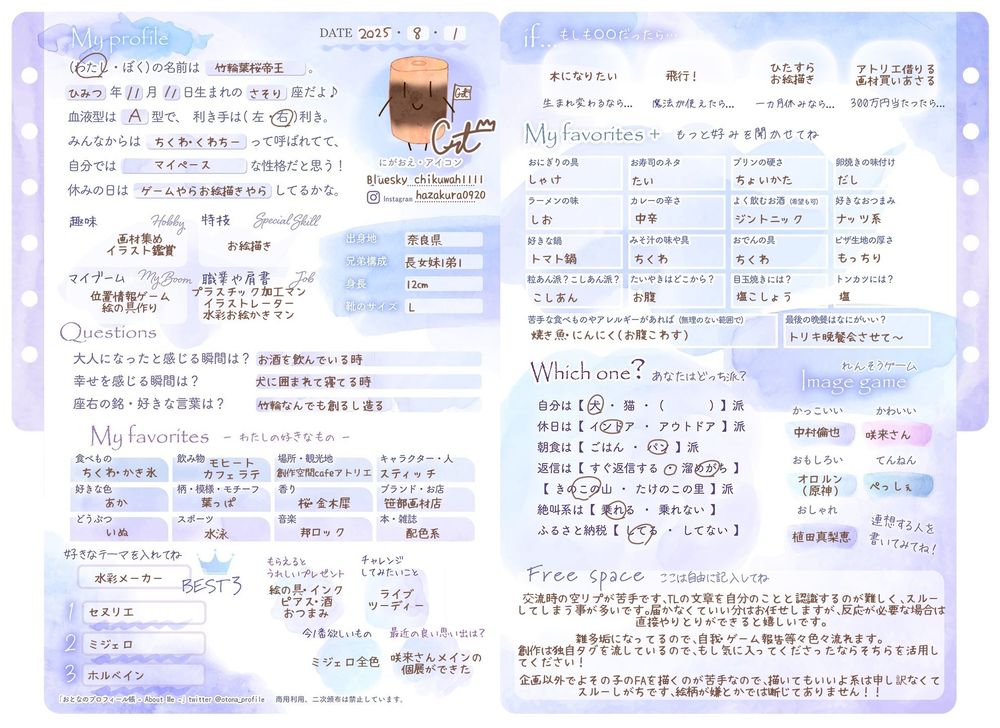 My profile
DATE 2025・8・1
(わたし・ぼく)の名前は 竹輪葉桜帝王 。
ひみつ 年 11 月 11 日生まれの さそり 座だよ♪
血液型は A 型で、 利き手は(左・右)利き。
みんなからは ちくわ・くわちー って呼ばれてて、
自分では マイペース な性格だと思う！
休みの日は ゲームやらお絵描きやら してるかな。
にがおえ・アイコン
Bluesky chikuwah1111
Instagram hazakura0920
趣味 Hobby
画材集め
イラスト鑑賞
特技 Special Skill
お絵描き
マイブーム My Boom
位置情報ゲーム
絵の具作り
職業や肩書 Job
プラスチック加工マン
イラストレーター
水彩お絵かきマン
出身地 奈良県
兄弟構成 長女妹1弟1
身長 12cm
靴のサイズ L
Questions
大人になったと感じる瞬間は？ お酒を飲んでいる時
幸せを感じる瞬間は？ 犬に囲まれて寝てる時
座右の銘・好きな言葉は？ 竹輪なんでも創るし造る
My favorites － わたしの好きなもの －
食べもの ちくわ・かき氷
飲み物 モヒート
カフェラテ
場所・観光地 創作空間cafeアトリエ
キャラクター・人 スティッチ
好きな色 あか
柄・模様・モチーフ 葉っぱ
香り 桜・金木犀
ブランド・お店 笹部画材店
どうぶつ いぬ
スポーツ 水泳
音楽 邦ロック
本・雑誌 配色系
好きなテーマを入れてね
水彩メーカー
BEST3
1 セヌリエ
2 ミジェロ
3 ホルベイン
もらえると
うれしいプレゼント
絵の具・インク
ピアス・酒
おつまみ
チャレンジ
してみたいこと
ライブ
ツーディー
今1番欲しいもの
ミジェロ全色
最近の良い思い出は？
咲来さんメインの
個展ができた
「おとなのプロフィール帳 - About Me -」twitter @otona_profile 商用利用、二次頒布は禁止しています。
if... もしも〇〇だったら…
木になりたい
生まれ変わるなら...
飛行！
魔法が使えたら...
ひたすら
お絵描き
一カ月休みなら...
アトリエ借りる
画材買いあさる
300万円当たったら...
My favorites+ もっと好みを聞かせてね
おにぎりの具 しゃけ
お寿司のネタ たい
プリンの硬さ ちょいかた
卵焼きの味付け だし
ラーメンの味 しお
カレーの辛さ 中辛
よく飲むお酒 (希望も可) ジントニック
好きなおつまみ ナッツ系
好きな鍋 トマト鍋
みそ汁の味や具 ちくわ
おでんの具 ちくわ
ピザ生地の厚さ もっちり
粒あん派？こしあん派？ こしあん
たいやきはどこから？ お腹
目玉焼きには？ 塩こしょう
トンカツには？ 塩
苦手な食べものやアレルギーがあれば (無理のない範囲で)
焼き魚・にんにく(お腹こわす)
最後の晩餐はなにがいい？
トリキ晩餐会させて〜
Which one? あなたはどっち派？
自分は【 犬 ・ 猫 ・ （ ）】派
休日は【 インドア ・ アウトドア 】派
朝食は【 ごはん ・ パン 】派
返信は【 すぐ返信する ・ 溜めがち 】
【 きのこの山 ・ たけのこの里 】派
絶叫系は【 乗れる ・ 乗れない 】
ふるさと納税【 してる ・ してない 】
れんそうゲーム
Image game
かっこいい
中村倫也
かわいい
咲来さん
おもしろい
オロルン
(原神)
てんねん
ぺっしぇ
おしゃれ
植田真梨恵
連想する人を
書いてみてね！
Free space ここは自由に記入してね
交流時の空リプが苦手です、TLの文章を自分のことと認識するのが難しく、スルー
してしまう事が多いです。届かなくていい分はお任せしますが、反応が必要な場合は
直接やりとりができると嬉しいです。
雑多垢になってるので、自我・ゲーム報告等々色々流れます。
創作は独自タグを流しているので、もし気に入ってくださったならそちらを活用し
てください！
企画以外でよその子のFAを描くのが苦手なので、描いてもいいよ系は申し訳なくて
スルーしがちです、絵柄が嫌とかでは断じてありません！！